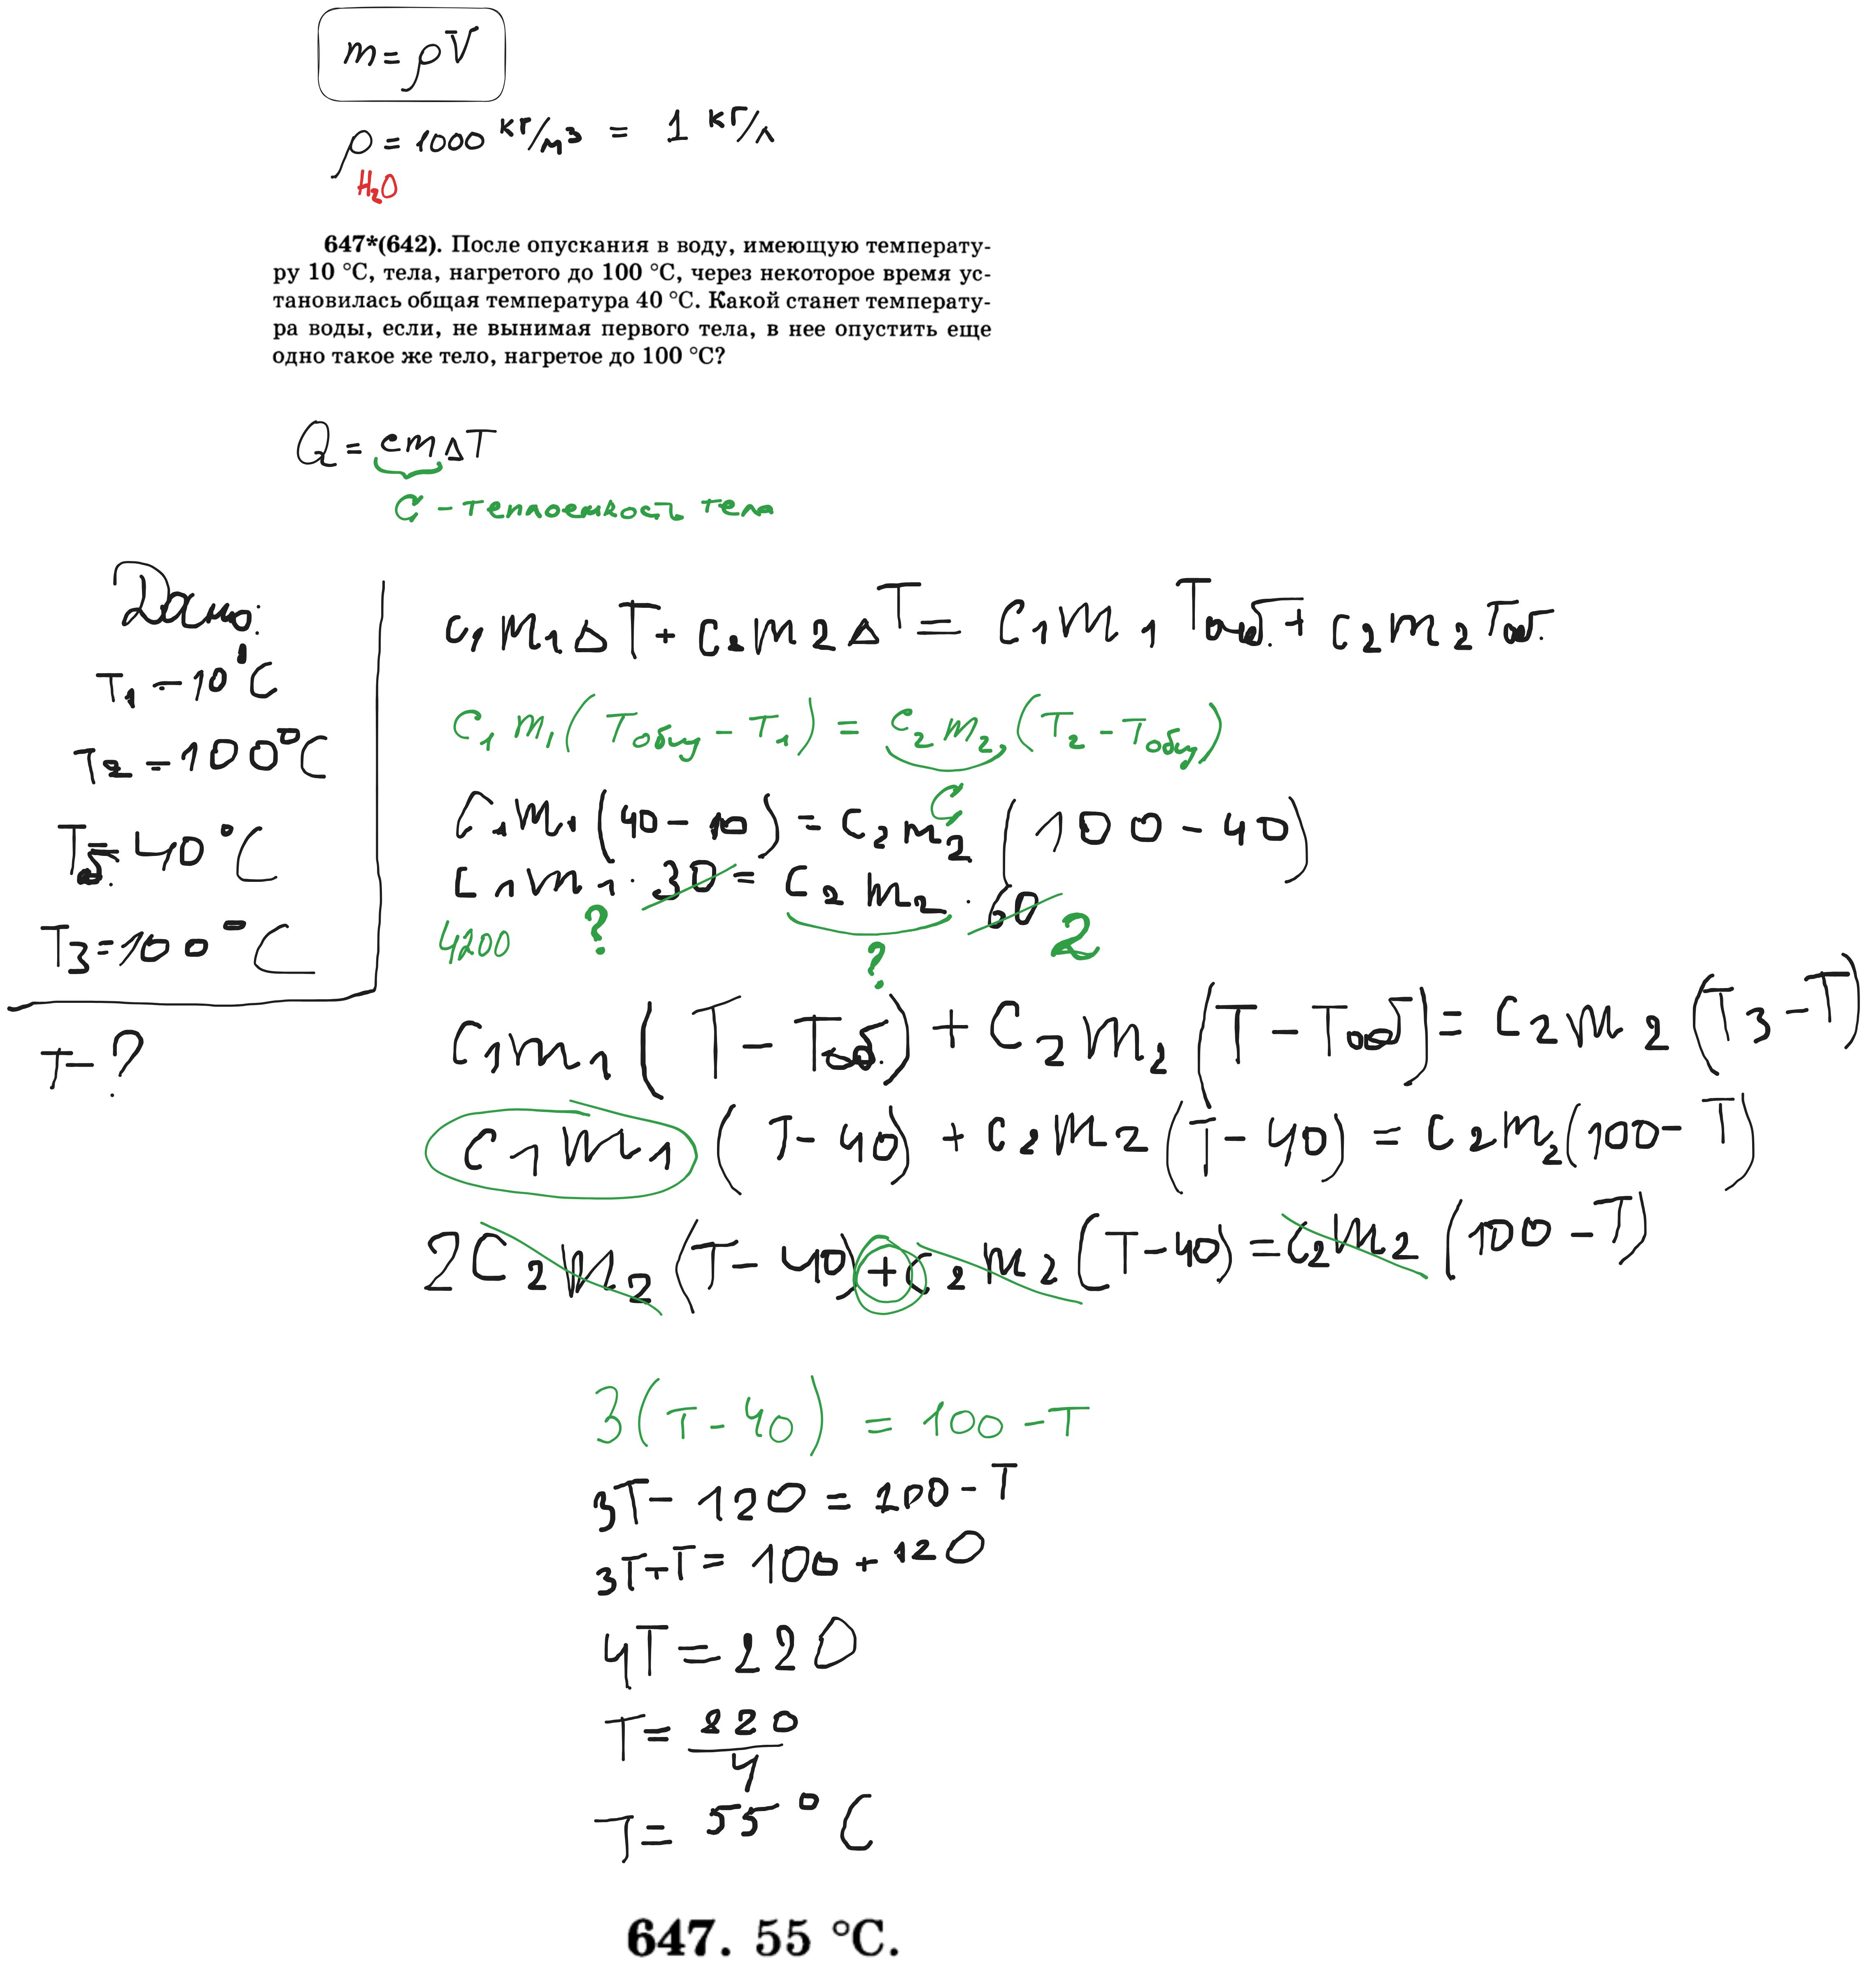 m = ρV
ρ = 1000 кг/м³ = 1 кг/л
H₂O
647*(642). После опускания в воду, имеющую температу-
ру 10 °С, тела, нагретого до 100 °С, через некоторое время ус-
тановилась общая температура 40 °С. Какой станет температу-
ра воды, если, не вынимая первого тела, в нее опустить еще
одно такое же тело, нагретое до 100 °С?
Q = cmΔT
C - теплоемкость тела
Дано:
T₁ – 10°C
T₂ – 100°C
Tоб. = 40°C
T₃ = 100°C
T – ?
c₁m₁ΔT + c₂m₂ΔT = c₁m₁Tоб. + c₂m₂Tоб.
c₁m₁(Tобщ – T₁) = c₂m₂(T₂ – Tобщ)
C
c₁m₁(40 – 10) = c₂m₂(100 – 40)
c₁m₁ · 30 = c₂m₂ · 60
4200 ? ? 2
c₁m₁(T – Tоб.) + c₂m₂(T – Tоб) = c₂m₂(T₃ – T)
c₁m₁(T – 40) + c₂m₂(T – 40) = c₂m₂(100 – T)
2c₂m₂(T – 40) + c₂m₂(T – 40) = c₂m₂(100 – T)
3(T – 40) = 100 – T
3T – 120 = 100 – T
3T + T = 100 + 120
4T = 220
T = 220/4
T = 55°C
647. 55 °С.